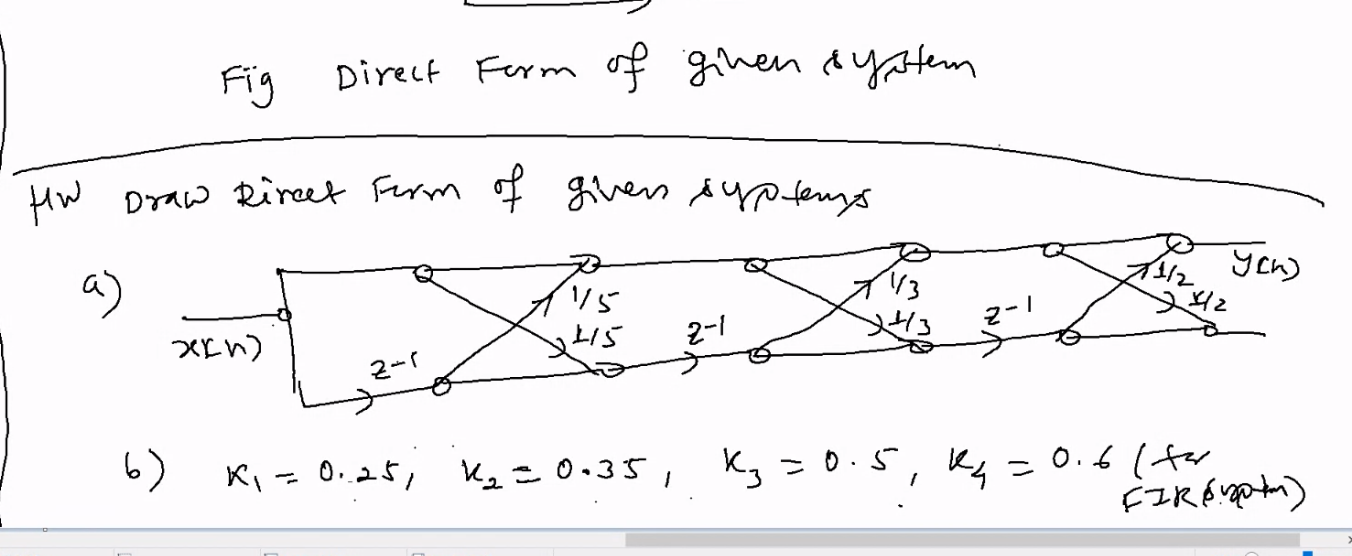 Fig Direct Form of given system
HW Draw Direct Form of given systems
a)
x(n)
z-1
1/5
1/5
z-1
1/3
1/3
z-1
1/2
1/2
y(n)
b) K1 = 0.25, K2 = 0.35, K3 = 0.5, K4 = 0.6 (for
FIR system)